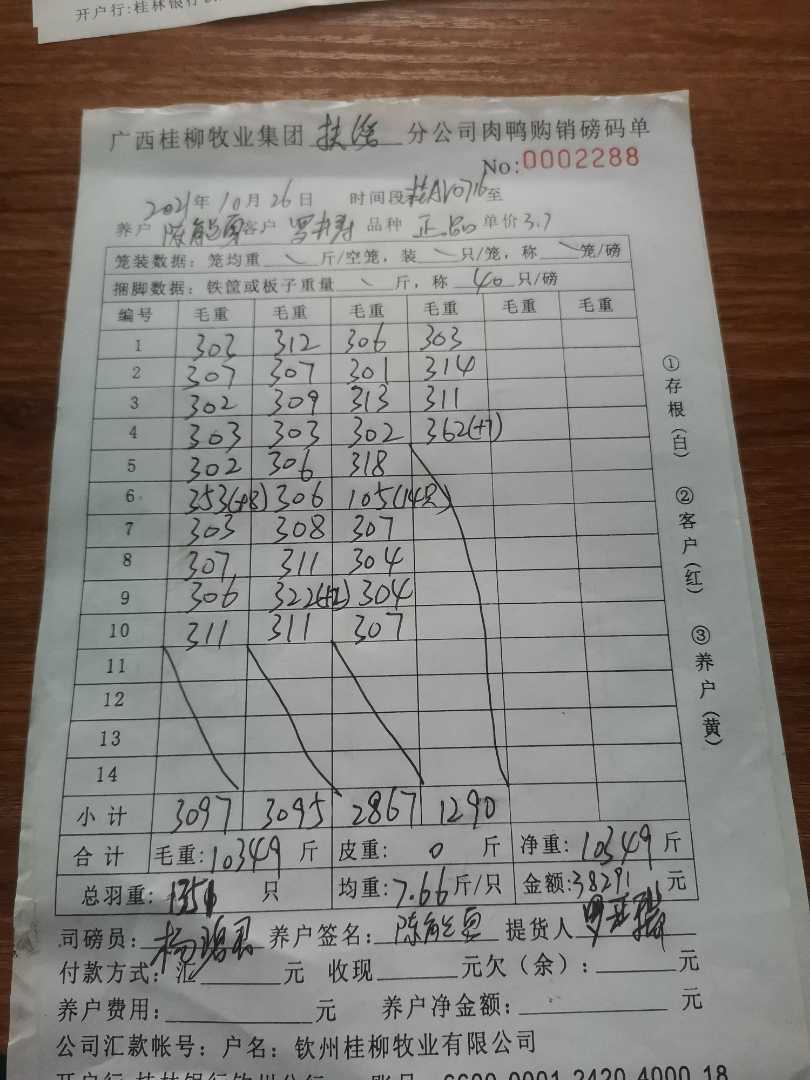 开户行:桂林银行
广西桂柳牧业集团 扶绥 分公司肉鸭购销磅码单
No:0002288
2021年10月26日 时间段 至
养户 陈能勇 客户 品种 正品 单价 3.7
笼装数据: 笼均重 \ 斤/空笼, 装 \ 只/笼, 称 \ 笼/磅
捆脚数据: 铁筐或板子重量 \ 斤, 称 40 只/磅
编号 毛重 毛重 毛重 毛重 毛重 毛重
1 303 312 306 303
2 307 307 301 314
3 302 309 313 311
4 303 303 302 362(+7)
5 302 306 318
6 353(+8) 306 105(14只)
7 303 308 307
8 307 311 304
9 306 322(+2) 304
10 311 311 307
11
12
13
14
小计 3097 3095 2867 1290
合计 毛重:10349斤 皮重: 0 斤 净重:10349斤
总羽重: 1351 只 均重:7.66斤/只 金额:38291元
司磅员: 养户签名: 陈能勇 提货人
付款方式: 汇 元 收现 元欠(余): 元
养户费用: 元 养户净金额: 元
公司汇款帐号: 户名: 钦州桂柳牧业有限公司
开户行 桂林银行钦州分行 账号 6600 0001 2420 4000 18
①存根(白) ②客户(红) ③养户(黄)